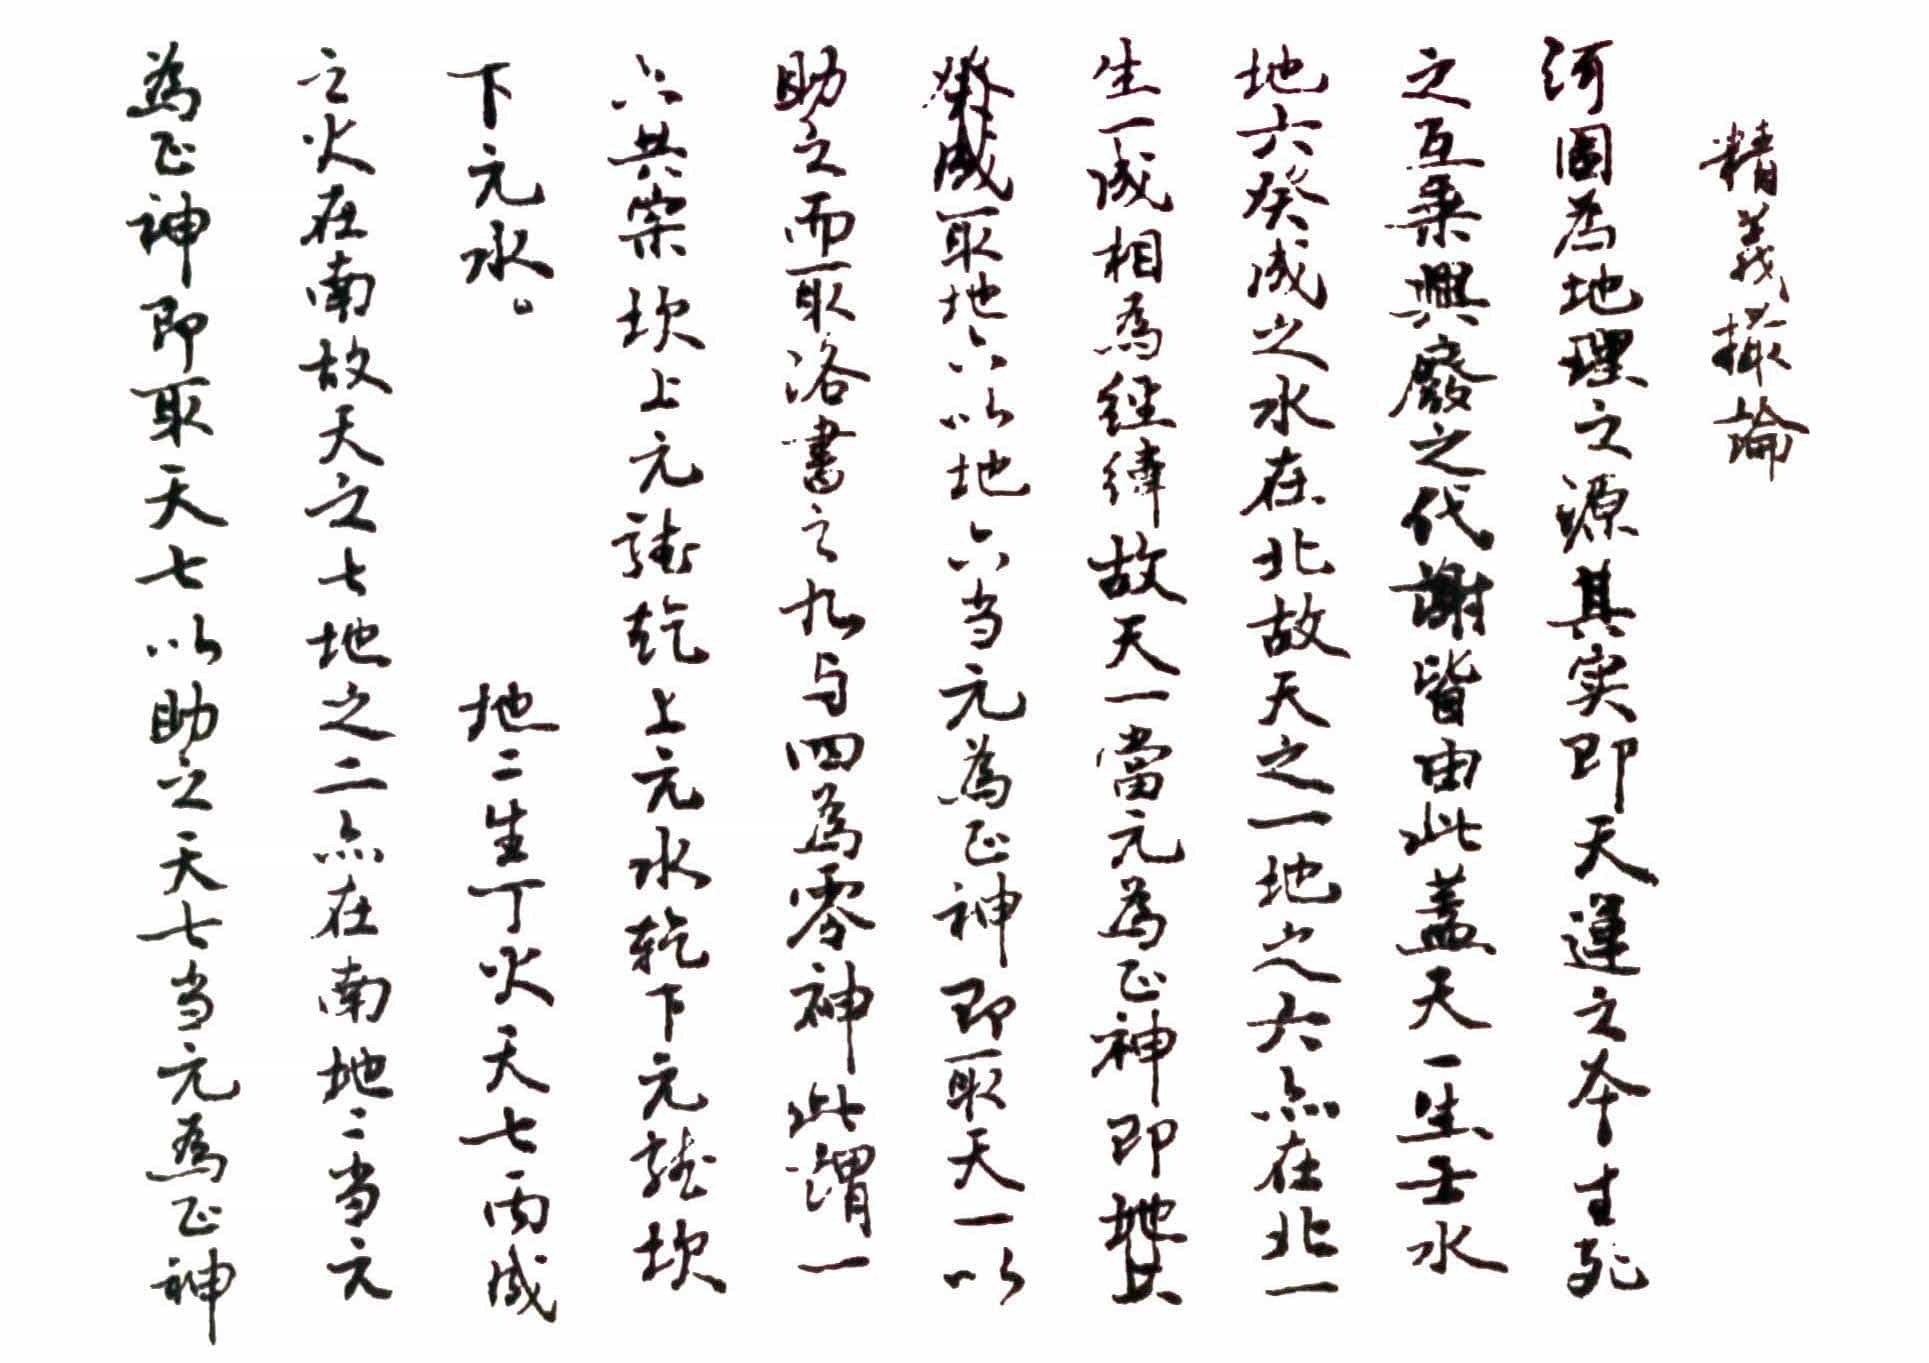 精义撮論
河图為地理之源其实即天運之本生死
之互乗興廢之代謝皆由此蓋天一生壬水
地六癸成之水在北故天之一地之六点在北一
生一成相為經緯故天一當元為正神即地
癸成取地六以地六当元為正神即取天一以
助之而取洛書之九与四為零神此謂一
六共宗坎上元龍乾上元水乾下元龍坎
下元水。 地二生丁火天七丙成
之火在南故天之七地之二点在南地二当元
為正神即取天七以助之天七当元為正神